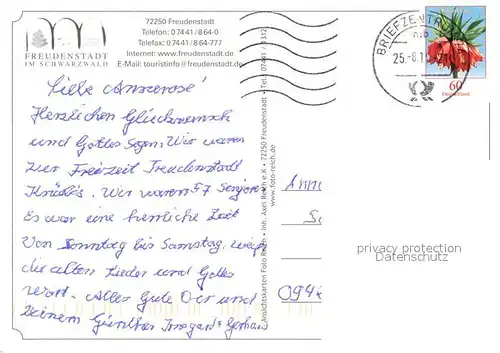 FREUDENSTADT
IM SCHWARZWALD
72250 Freudenstadt
Telefon: 07441/864-0
Telefax: 07441/864-777
Internet: www.freudenstadt.de
E-Mail: touristinfo@freudenstadt.de
Liebe Annerose!
Herzlichen Glückwunsch
und Gottes Segen. Wir waren
zur Freizeit Freudenstadt
Wir waren 57
Es war eine herrliche Zeit
Von Sonntag bis Samstag,
die alten Lieder und Gottes
Wort. Alles Gute Dir und
Deinem Günther Irmgard Gerhard
Ansichtskarten Foto Reich • Inh. Axel Reich e.K • 72250 Freudenstadt • Tel.
www.foto-reich.de
BRIEFZENTRUM
25.-8.1
60
Deutschland
privacy protection
Datenschutz
094